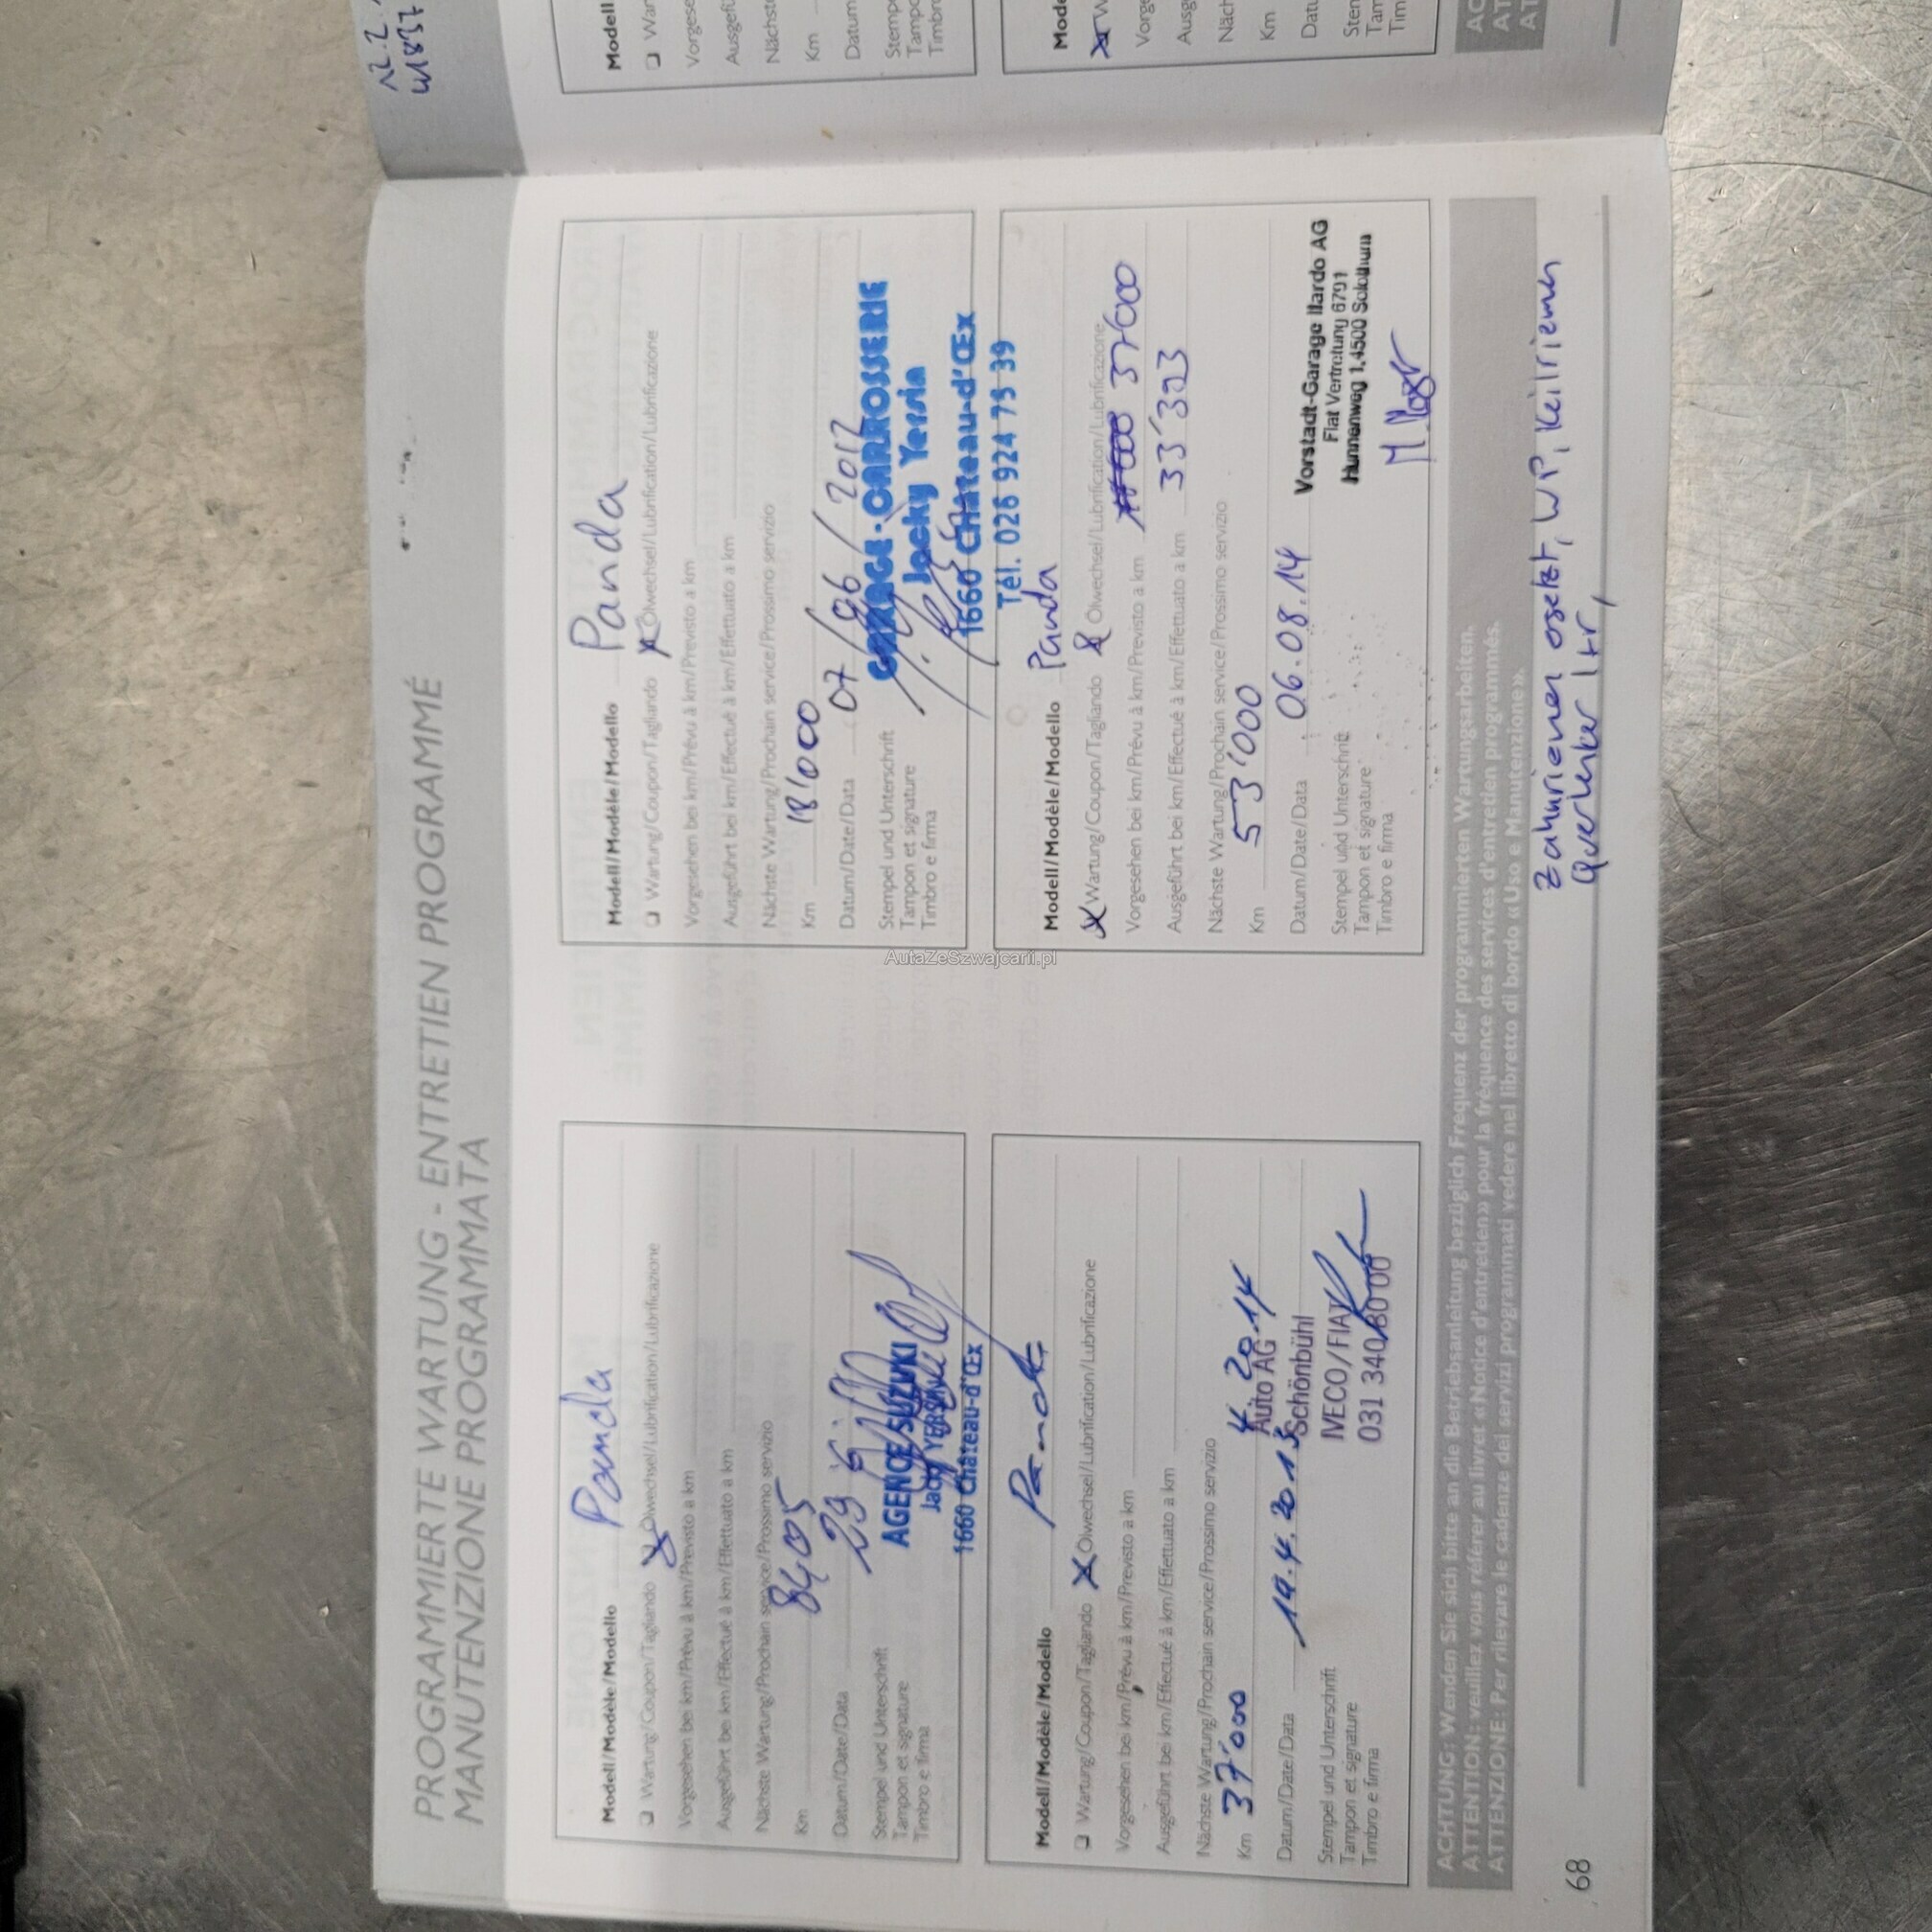 PROGRAMMIERTE WARTUNG - ENTRETIEN PROGRAMMÉ
MANUTENZIONE PROGRAMMATA
Modell/Modèle/Modello Panda
❏ Wartung/Coupon/Tagliando Ölwechsel/Lubrification/Lubrificazione
Vorgesehen bei km/Prévu à km/Previsto a km
Ausgeführt bei km/Effectué à km/Effettuato a km
Nächste Wartung/Prochain service/Prossimo servizio
Km 8405
Datum/Date/Data
Stempel und Unterschrift
Tampon et signature
Timbro e firma
AGENCE SUZUKI
1660 Château-d'Œx
Modell/Modèle/Modello Panda
❏ Wartung/Coupon/Tagliando Ölwechsel/Lubrification/Lubrificazione
Vorgesehen bei km/Prévu à km/Previsto a km
Ausgeführt bei km/Effectué à km/Effettuato a km
Nächste Wartung/Prochain service/Prossimo servizio
Km 18'000
Datum/Date/Data 07/06/2012
Stempel und Unterschrift
Tampon et signature
Timbro e firma
GARAGE-CARROSSERIE
Jacky Yersin
1660 Château-d'Œx
Tél. 026 924 75 39
Modell/Modèle/Modello Panda
❏ Wartung/Coupon/Tagliando Ölwechsel/Lubrification/Lubrificazione
Vorgesehen bei km/Prévu à km/Previsto a km
Ausgeführt bei km/Effectué à km/Effettuato a km
Nächste Wartung/Prochain service/Prossimo servizio
Km 37'000 4.2014
Datum/Date/Data 19.4.2013
Stempel und Unterschrift
Tampon et signature
Timbro e firma
Auto AG
Schönbühl
IVECO/FIAT
031 340 80 00
Modell/Modèle/Modello Panda
Wartung/Coupon/Tagliando Ölwechsel/Lubrification/Lubrificazione
Vorgesehen bei km/Prévu à km/Previsto a km 37'000
Ausgeführt bei km/Effectué à km/Effettuato a km 33'323
Nächste Wartung/Prochain service/Prossimo servizio
Km 53'000
Datum/Date/Data 06.08.14
Stempel und Unterschrift
Tampon et signature
Timbro e firma
Vorstadt-Garage Ilardo AG
Fiat Vertretung 6791
Hunnenweg 1, 4500 Solothurn
ACHTUNG: Wenden Sie sich bitte an die Betriebsanleitung bezüglich Frequenz der programmierten Wartungsarbeiten.
ATTENTION: veuillez vous référer au livret «Notice d'entretien» pour la fréquence des services d'entretien programmés.
ATTENZIONE: Per rilevare le cadenze dei servizi programmati vedere nel libretto di bordo «Uso e Manutenzione».
Zahnriemen esetzt, WP, Keilriemen
Querlenker l+r,
68
12.2.
Modell
Vorgese
Ausgefü
Nächst
Km
Datum
Stemp
Tampo
Timbro
Mode
Vorge
Ausg
Näch
Km
Datu
Sten
Tam
Tim
AutaZeSzwajcarii.pl